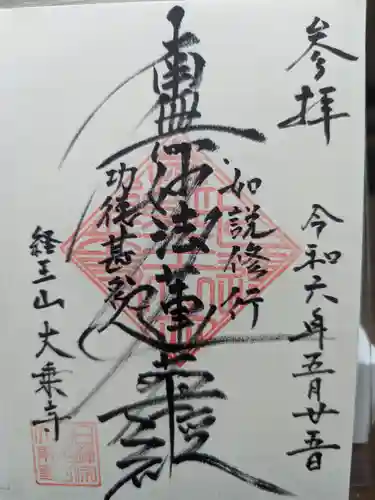 参拝
令和六年五月廿五日
如説修行
南無妙法蓮華経
功徳甚深
経王山大乗寺